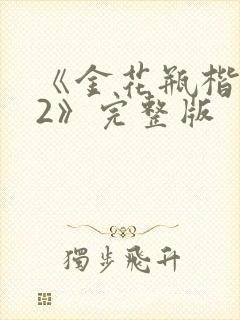 《金花瓶楷
2》完整版
獨步飛升